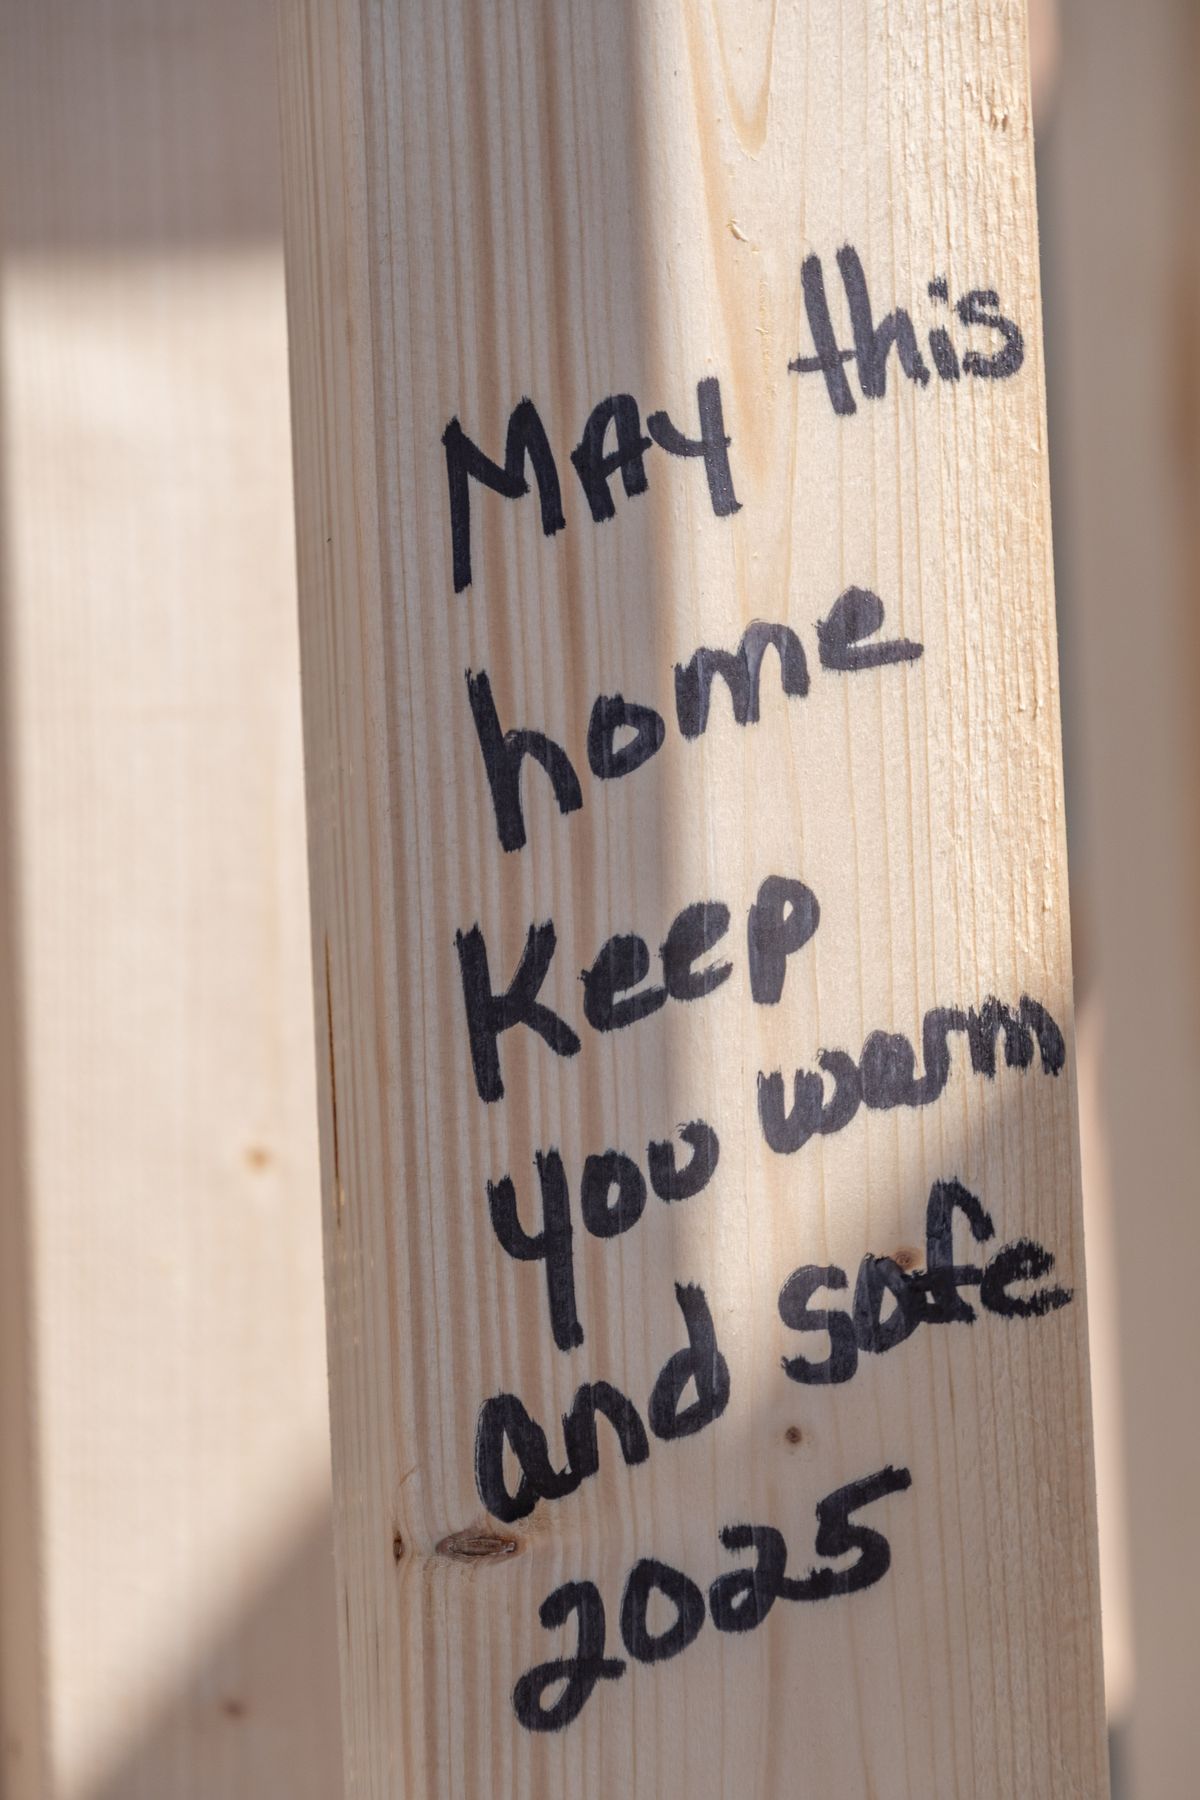 MAY this
home
Keep
you warm
and safe
2025